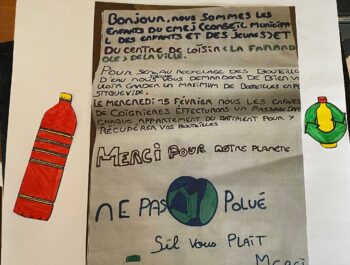 Bonjour, nous sommes les
enfants du CMEJ (conseil municipa
l des enfants et des jeunes) et
du centre de loisir « la farand
ole » de la ville.
Pour recyclage des bouteilles
d'eau nous vous demandons de bien v
garder un maximum de bouteilles en pl
stique vide.
Le mercredi 15 février nous les enfants
de Coignières effectuons un passage dans
chaque appartement du bâtiment pour y
récupérer vos bouteilles
Merci pour notre planète
ne pas polué
Sil vous plaît
Merci